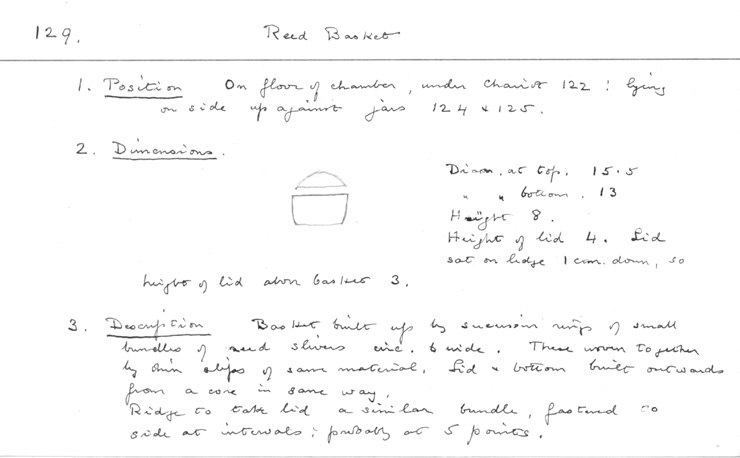 129. Reed Basket
1. Position On floor of chamber, under Chariot 122 : lying
on side up against jars 124 & 125.
2. Dimensions.
Diam. at top. 15.5
" " bottom. 13
Height 8.
Height of lid 4. Lid
sat on ledge 1 cm. down, so
height of lid above basket 3.
3. Description Basket built up by successive rings of small
bundles of reed slivers circ. 6 wide. These woven together
by thin strips of same material. Lid & bottom built outwards
from a core in same way.
Ridge to take lid a similar bundle, fastened to
side at intervals : probably at 5 points.